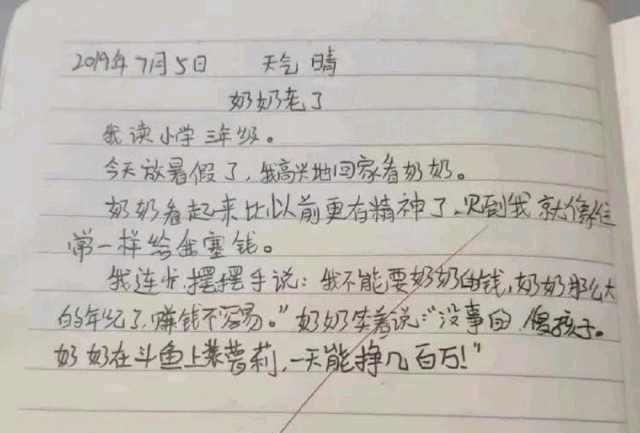 2019年7月5日 天气 晴
奶奶老了
我读小学三年级。
今天放暑假了,我高兴地回家看奶奶。
奶奶看起来比以前更有精神了,见到我就像往
常一样给我塞钱。
我连忙摆摆手说:我不能要奶奶的钱,奶奶那么大
的年纪了,赚钱不容易。"奶奶笑着说:"没事的,傻孩子。
奶奶在斗鱼上装萝莉,一天能挣几百万!"